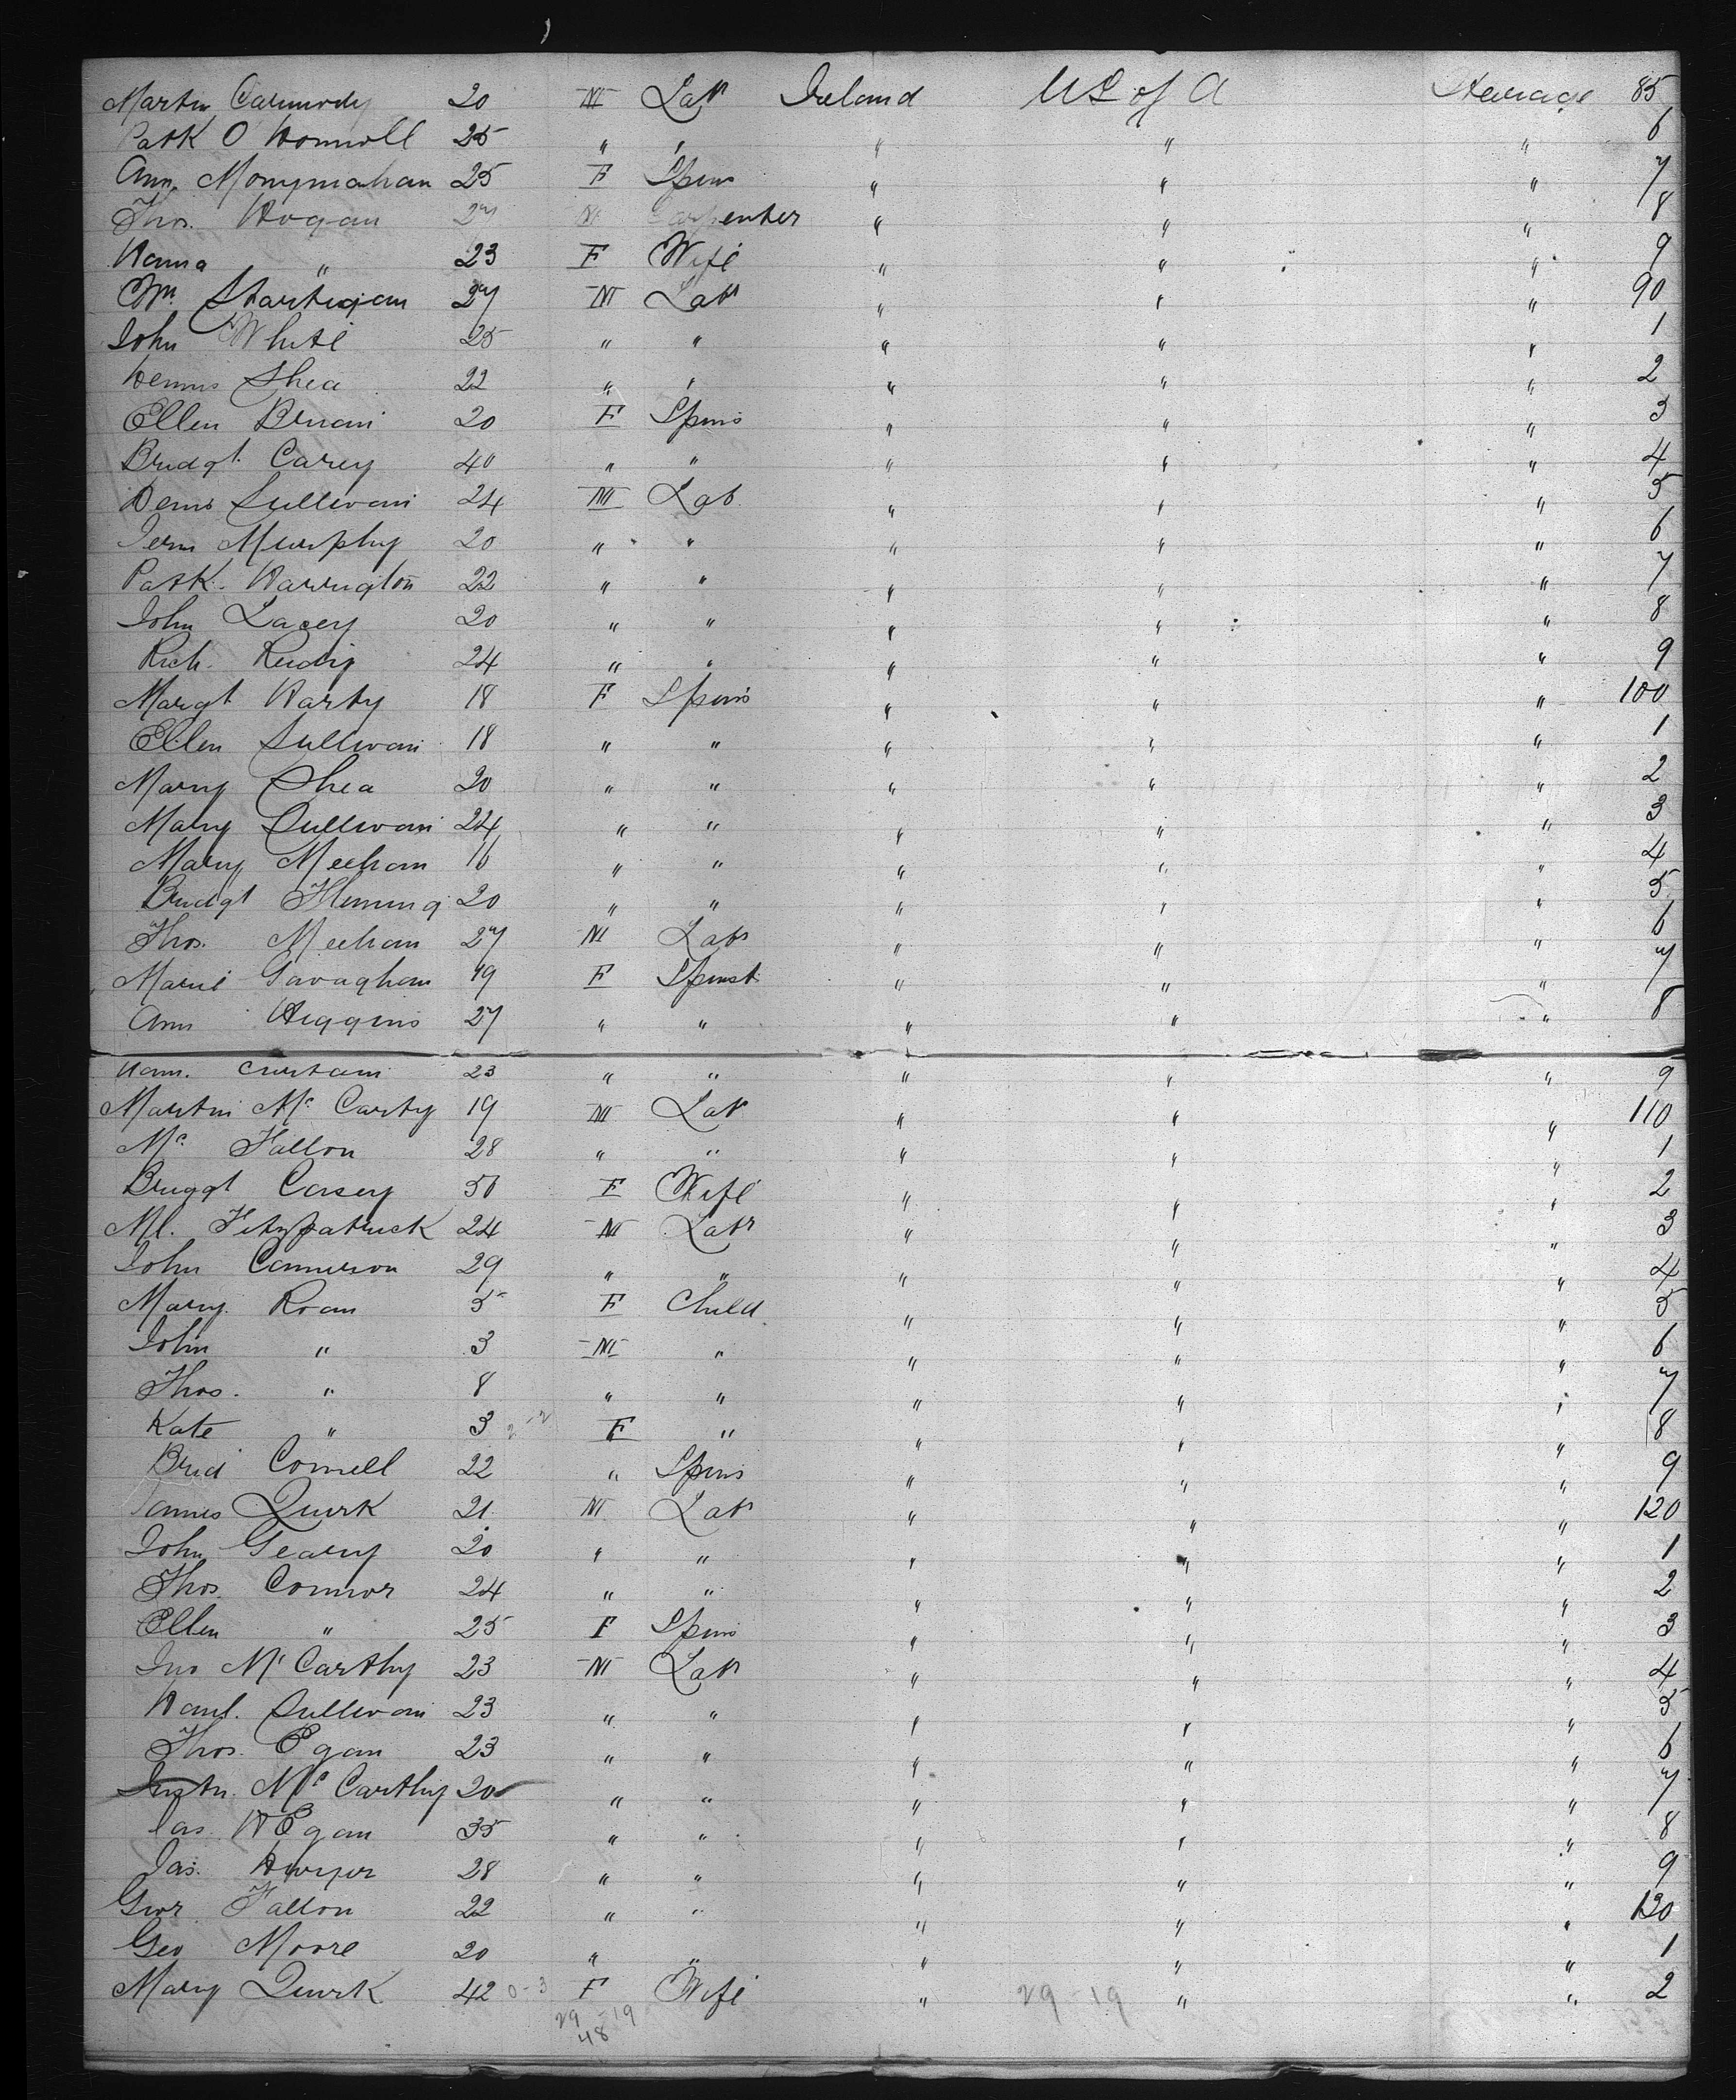 Martin Carmody 20 M Labr Ireland U S of A Steerage 85
Patk O'Donnell 25 " " " " " 6
Ann. Monymahan 25 F Spin " " " 7
Thos. Hogan 27 M Carpenter " " " 8
Hanna " 23 F Wife " " " 9
Wm Hartigan 27 M Labr " " " 90
John White 25 " " " " " 1
Dennis Shea 22 " " " " " 2
Ellen 20 F Spins " " " 3
Bridgt. Carey 40 " " " " " 4
Denis Sullivan 24 M Lab. " " " 5
Jerm Murphy 20 " " " " " 6
Patk. Harrington 22 " " " " " 7
John Lacey 20 " " " " " 8
Rich. 24 " " " " " 9
Margt Harty 18 F Spins " " " 100
Ellen Sullivan 18 " " " " " 1
Mary Shea 20 " " " " " 2
Mary Sullivan 24 " " " " " 3
Mary Meehan 16 " " " " " 4
Bridgt Fleming 20 " " " " " 5
Thos. Meehan 27 M Labr " " " 6
Marie Gavaghan 19 F Spinst " " " 7
Ann Higgins 27 " " " " " 8
Han. Curtain 23 " " " " " 9
Martin Mc Carty 19 M Labr " " " 110
Mc Fallon 28 " " " " " 1
Briggt Casey 50 F Wife " " " 2
Ml. Fitzpatrick 24 M Labr " " " 3
John Cannerson 29 " " " " " 4
Mary. Roan 5 F Child " " " 5
John " 3 M " " " " 6
Thos. " 8 " " " " " 7
Kate " 3 F " " " " 8
Brid Connell 22 " Spins " " " 9
James Quirk 21 M Labr " " " 120
John Geary 20 " " " " " 1
Thos. Connor 24 " " " " " 2
Ellen " 25 F Spins " " " 3
Jno McCarthy 23 M Labr " " " 4
Danl. Sullivan 23 " " " " " 5
Thos. Egan 23 " " " " " 6
Mc Carthy 20 " " " " " 7
Jas. H Egan 35 " " " " " 8
Jas. Dwyer 28 " " " " " 9
Fallon 22 " " " " " 130
Geo Moore 20 " " " " " 1
Mary Quirk 42 0-3 F Wife " 29-19 " " 2
29-19
48